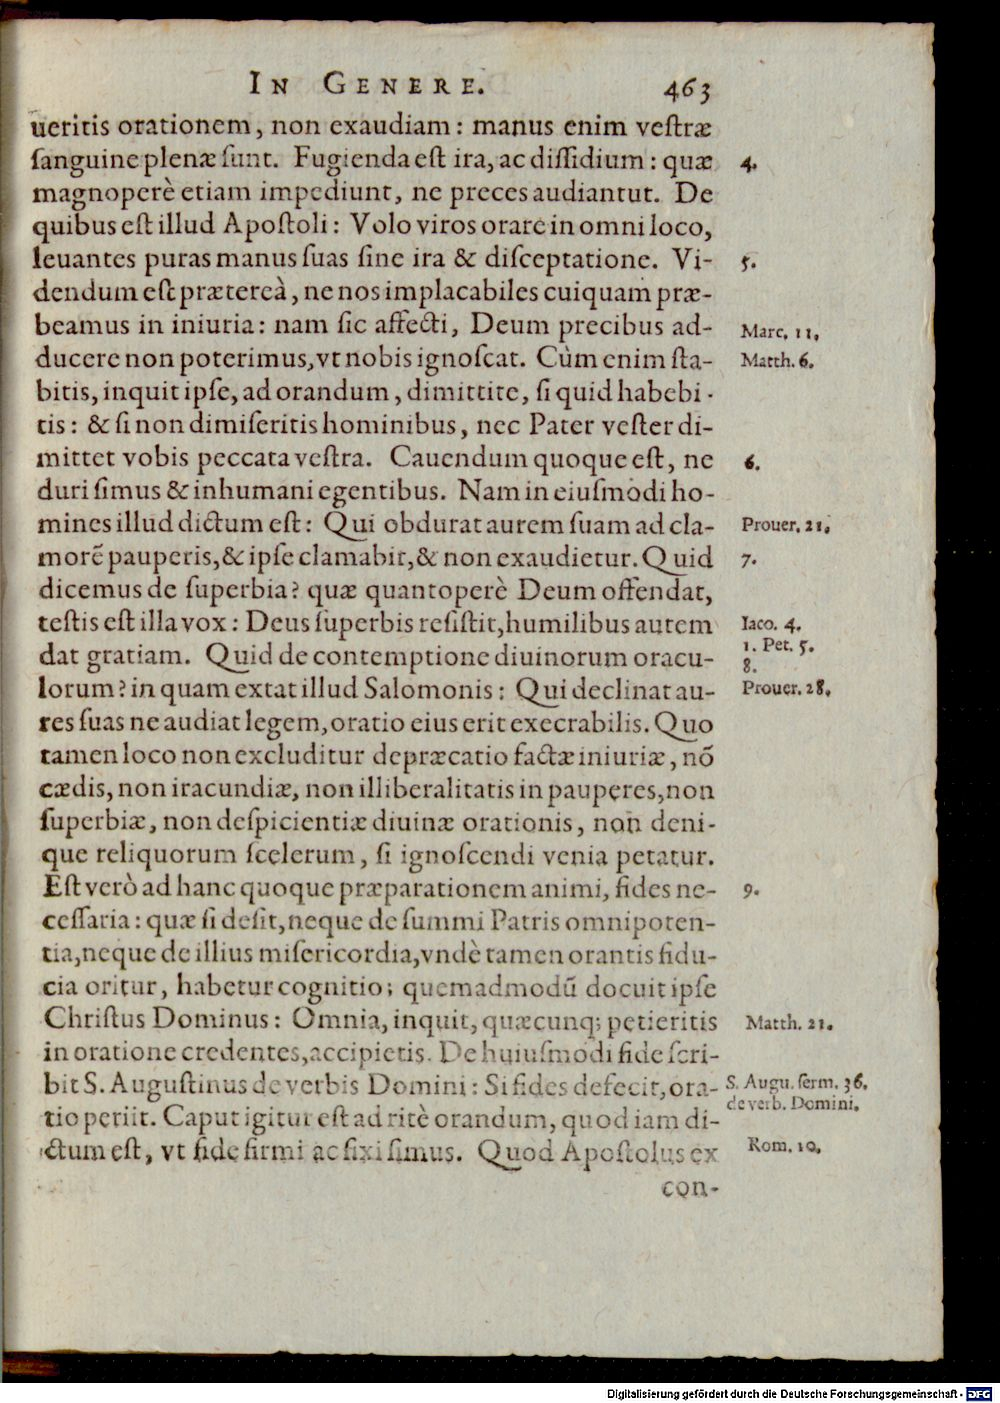 IN GENERE. 463
ueritis orationem, non exaudiam: manus enim veſtræ
ſanguine plenæ ſunt. Fugienda eſt ira, ac diſſidium: quæ
4.
magnoperè etiam impediunt, ne preces audiantut. De
quibus eſt illud Apoſtoli: Volo viros orare in omni loco,
leuantes puras manus ſuas ſine ira & diſceptatione. Vi-
5.
dendum eſt prætereà, ne nos implacabiles cuiquam præ-
beamus in iniuria: nam ſic affecti, Deum precibus ad-
Marc. 11.
ducere non poterimus, vt nobis ignoſcat. Cùm enim ſta-
Matth. 6.
bitis, inquit ipſe, ad orandum, dimittite, ſi quid habebi-
tis: & ſi non dimiſeritis hominibus, nec Pater veſter di-
mittet vobis peccata veſtra. Cauendum quoque eſt, ne
6.
duri ſimus & inhumani egentibus. Nam in eiuſmodi ho-
mines illud dictum eſt: Qui obdurat aurem ſuam ad cla-
Prouer. 21.
morẽ pauperis, & ipſe clamabit, & non exaudietur. Quid
7.
dicemus de ſuperbia? quæ quantoperè Deum offendat,
teſtis eſt illa vox: Deus ſuperbis reſiſtit, humilibus autem
Iaco. 4.
1. Pet. 5.
dat gratiam. Quid de contemptione diuinorum oracu-
8.
lorum? in quam extat illud Salomonis: Qui declinat au-
Prouer. 28.
res ſuas ne audiat legem, oratio eius erit execrabilis. Quo
tamen loco non excluditur depræcatio factæ iniuriæ, nõ
cædis, non iracundiæ, non illiberalitatis in pauperes, non
ſuperbiæ, non deſpicientiæ diuinæ orationis, non deni-
que reliquorum ſcelerum, ſi ignoſcendi venia petatur.
Eſt verò ad hanc quoque præparationem animi, fides ne-
9.
ceſſaria: quæ ſi deſit, neque de ſummi Patris omnipoten-
tia, neque de illius miſericordia, vndè tamen orantis fidu-
cia oritur, habetur cognitio; quemadmodũ docuit ipſe
Chriſtus Dominus: Omnia, inquit, quæcunq; petieritis
Matth. 21.
in oratione credentes, accipietis. De huiuſmodi fide ſcri-
bit S. Auguſtinus de verbis Domini: Si fides defecit, ora-
S. Augu. ſerm. 36.
de verb. Domini.
tio periit. Caput igitur eſt ad ritè orandum, quod iam di-
ctum eſt, vt fide firmi ac fixi ſimus. Quod Apoſtolus ex
Rom. 10.
con-
Digitalisierung gefördert durch die Deutsche Forschungsgemeinschaft - DFG